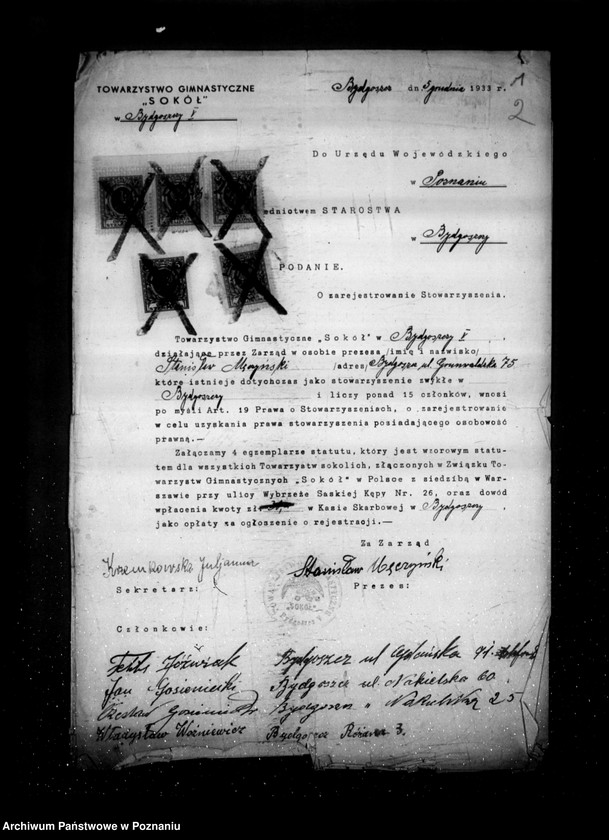 1
2
TOWARZYSTWO GIMNASTYCZNE
„SOKÓŁ"
w Bydgoszczy V
Bydgoszcz dn. 5 grudnia 1933 r.
Do Urzędu Wojewódzkiego
w Poznaniu
ednictwem STAROSTWA
w Bydgoszczy
PODANIE.
O zarejestrowanie Stowarzyszenia.
Towarzystwo Gimnastyczne „Sokół" w Bydgoszczy V,
działające przez Zarząd w osobie prezesa /imię i nazwisko/
Stanisław Męczyński /adres/ Bydgoszcz, ul. Grunwaldzka 75
które istnieje dotychczas jako stowarzyszenie zwykłe w
Bydgoszczy i liczy ponad 15 członków, wnosi
po myśli Art. 19 Prawa o Stowarzyszeniach, o zarejestrowanie
w celu uzyskania prawa stowarzyszenia posiadającego osobowość
prawną.—
Załączamy 4 egzemplarze statutu, który jest wzorowym statu-
tem dla wszystkich Towarzystw sokolich, złączonych w Związku To-
warzystw Gimnastycznych „Sokół" w Polsce z siedzibą w War-
szawie przy ulicy Wybrzeże Saskiej Kępy Nr. 26, oraz dowód
wpłacenia kwoty zł w Kasie Skarbowej w Bydgoszczy,
jako opłaty za ogłoszenie o rejestracji.—
Za Zarząd
Stanisław Męczyński
Sekretarz: Prezes:
"SOKÓŁ"
Członkowie:
Feliks Jóźwiak Bydgoszcz ul. Gdańska 91.
Jan Bydgoszcz ul. Nakielska 60.
Czesław Bydgoszcz " Nakielska 25
Władysław Woźniewicz Bydgoszcz Różana 3.
Archiwum Państwowe w Poznaniu